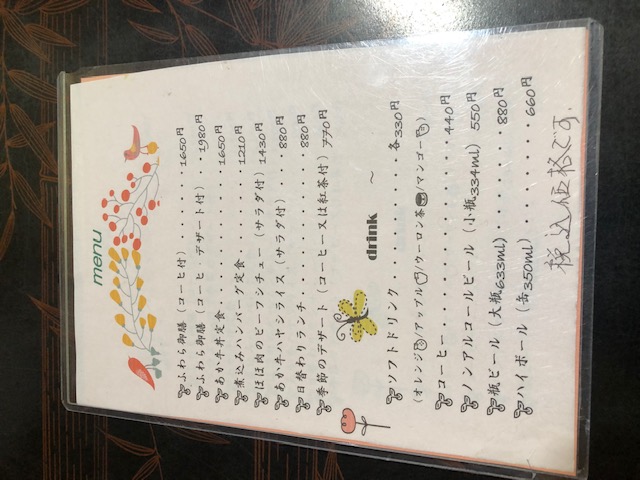 menu
ふわら御膳（コーヒ付）・・・・・・1650円
ふわら御膳（コーヒ デザート付）・・1980円
あか牛丼定食・・・・・・・・・・1650円
煮込みハンバーグ定食・・・・・・1210円
ほほ肉のビーフシチュー（サラダ付）1430円
あか牛ハヤシライス（サラダ付）・・・880円
日替わりランチ・・・・・・・・・・880円
季節のデザート（コーヒー又は紅茶付）770円
drink 〜
ソフトドリンク・・・・・・・・・・各330円
（オレンジ/アップル/ウーロン茶/マンゴー）
コーヒー・・・・・・・・・・・・・440円
ノンアルコールビール（小瓶334ml）550円
瓶ビール（大瓶633ml）・・・・・・880円
ハイボール（缶350ml）・・・・・・660円
税込価格です。